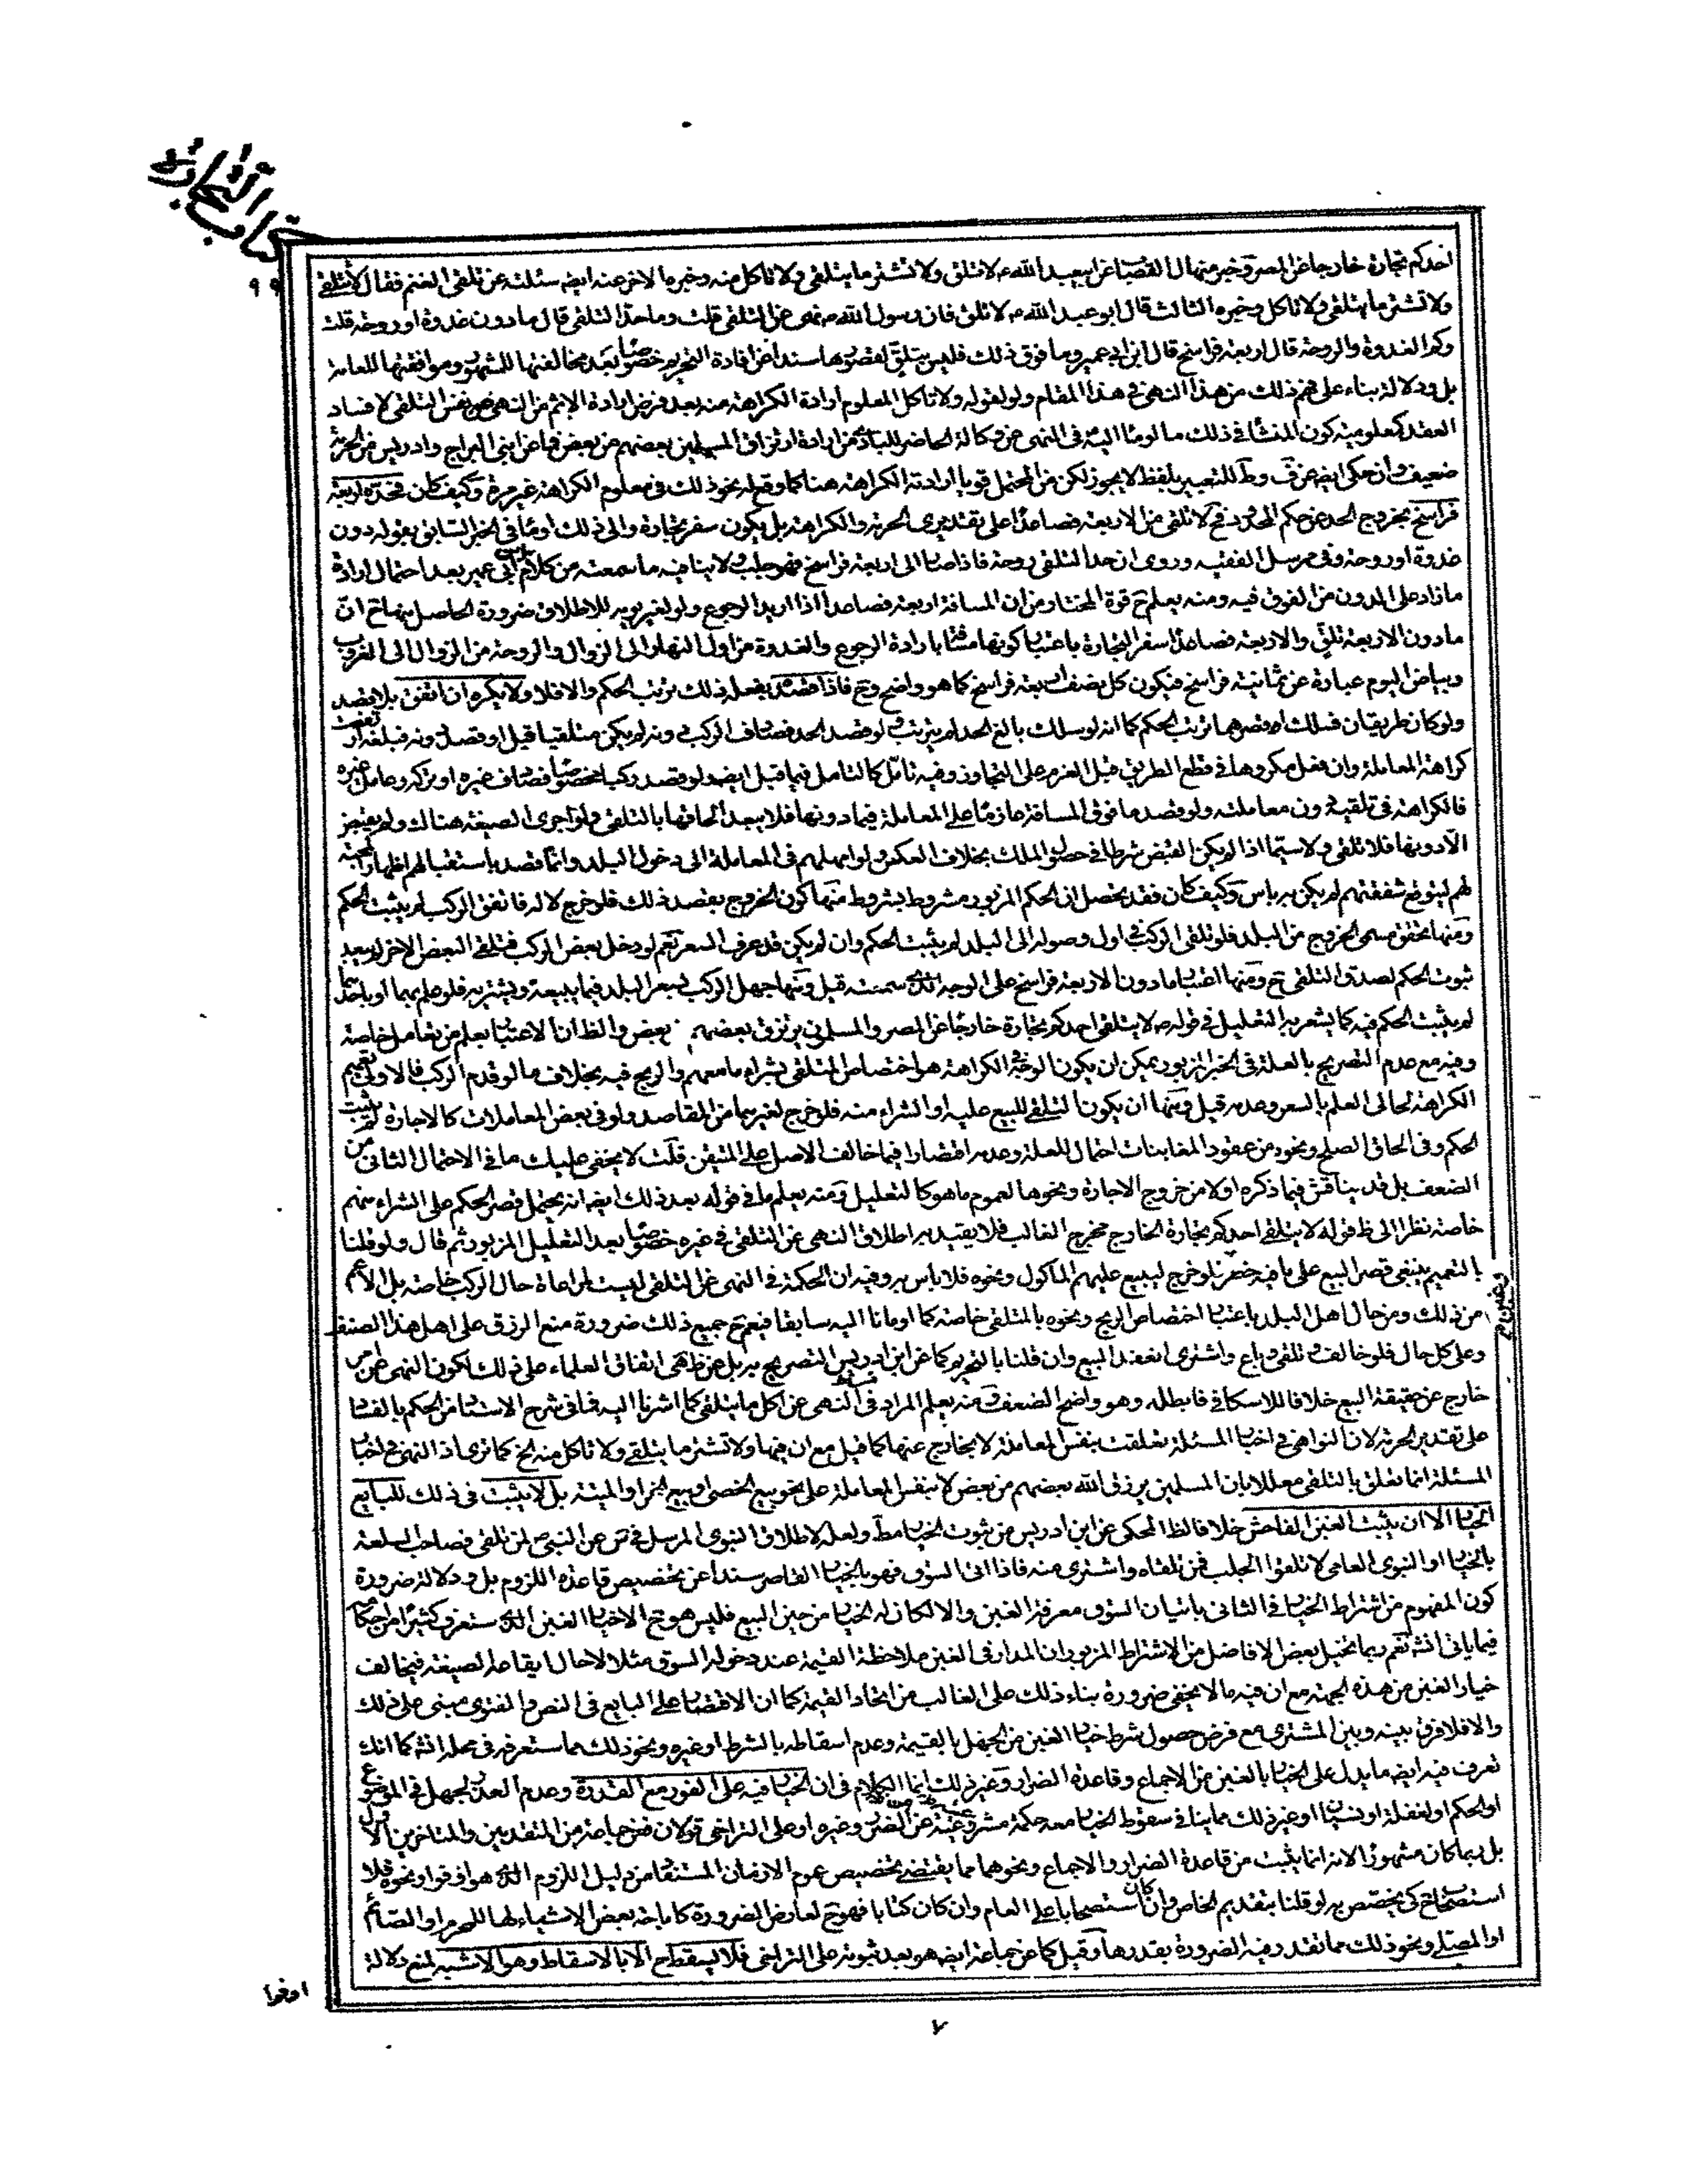 كتاب التجارة
٩٩
احدكم تجارة خارجا عن المصر وخبر منهال القصاب عن ابيعبد الله ع لا تلق ولا تشتر ما يتلقى ولا تاكل منه وخبره الاخر عنه ايضه سئلته عن تلقى الغنم فقال لا تلق
ولا تشتر ما يتلقى ولا تاكل وخبره الثالث قال ابو عبد الله ع لا تلق فان رسول الله ص نهى عن التلقى قلت وما حد التلقى قال ما دون غدوة او روحة قلت
وكم الغدوة والروحة قال اربعة فراسخ قال ابن ابي عمير وما فوق ذلك فليس بتلق لقصورها سندا عن افادة التحريم خصوصا بعد مخالفتها للشهرة وموافقتها للعامة
بل ودلالة بناء على فهم ذلك من هذا النهى في هذا المقام ولو لقوله ولا تاكل المعلوم ارادة الكراهة منه بعد فرض ارادة الاثم من النهى عن نفس التلقى لا فساد
العقد كمعلومية كون المنشا في ذلك ما اومأ اليه في النهى عن وكالة الحاضر للباد من ارادة ارتزاق المسلمين بعضهم من بعض فما عن ابنى البراج وادريس من الحرمة
ضعيف وان حكى ايضه عن ف وط للتعبير بلفظ لا يجوز لكن من المحتمل قويا ارادته الكراهة هنا كما وقع له نحو ذلك في معلوم الكراهة غير مرة وكيف كان فحده اربعة
فراسخ بخروج الحد عن حكم المحدود فح لا تلقى من الاربعة فصاعدا على تقديرى الحرمة والكراهة بل يكون سفر تجارة والى ذلك اومأ في الخبر السابق بقوله دون
غدوة او روحة وفي مرسل الفقيه وروى ان حد التلقى روحة فاذا صار الى اربعة فراسخ فهو جلب ولا ينافيه ما سمعته من كلام ابن ابي عمير بعد احتمال ارادة
ما زاد على الدون من الفوق فيه ومنه يعلم ح قوة المختار من ان المسافة اربعة فصاعدا اذا اريد الرجوع ولو لغير يومه للاطلاق ضرورة الحاصل منهما ح ان
ما دون الاربعة تلق والاربعة فصاعدا سفر للتجارة باعتبار كونها منشا بارادة الرجوع والغدوة من اول النهار الى الزوال والروحة من الزوال الى الغروب
وبياض اليوم عبارة عن ثمانية فراسخ فيكون كل نصف اربعة فراسخ كما هو واضح وح فاذا قصد بفعله ذلك ترتب الحكم والا فلا ولا يكره ان اتفق بلا قصد
ولو كان طريقان فسلك اقصرهما ترتب الحكم كما انه لو سلك بالغ الحد لم يترتب ولو قصد الحد فصادف الركب دونه لم يكن متلقيا قيل او فصل دونه فبلغه ارتفعت
كراهة المعاملة وان فعل مكروها في قطع الطريق قبل العزم على التجاوز وفيه تامل كالتامل فيما قيل ايضه لو قصد ركبا مخصوصا فصادف غيره او تركه وعامل غيره
فالكراهة في تلقيه دون معاملته ولو قصد ما فوق المسافة عازما على المعاملة فيما دونها فلا يبعد الحاقها بالتلقى ولو اجرى الصيغة هنالك ولم يقبض
الا دونها فلا تلقى ولا سيما اذا لم يكن القبض شرطا في حصول الملك بخلاف العكس ولو امهلهم في المعاملة الى دخول البلد وانما قصد باستقبالهم اظهار المحبة
لهم ليتوقع شفقتهم لم يكن به باس وكيف كان فقد تحصل ان الحكم المزبور مشروط بشروط منها كون الخروج بقصد ذلك فلو خرج لا له فاتفق الركب لم يثبت الحكم
ومنها تحقق مسمى الخروج من البلد فلو تلقى الركب في اول وصوله الى البلد لم يثبت الحكم وان لم يكن قد عرف السعر نعم لو دخل بعض الركب فتلقى البعض الاخر لم يبعد
ثبوت الحكم لصدق التلقى ح ومنها اعتبار ما دون الاربعة فراسخ على الوجه الذى سمعته قيل ومنها جهل الركب بسعر البلد فيما يبيعه ويشتريه فلو علم بهما او باحدهما
لم يثبت الحكم فيه كما يشعر به التعليل في قوله ص لا يتلقى احدكم تجارة خارجا عن المصر والمسلمون يرتزق بعضهم من بعض والظ ان الاعتبار بعلم من يعامل خاصة
وفيه مع عدم التصريح بالعلة في الخبر المزبور يمكن ان يكون الوجه في الكراهة هو اختصاص المتلقى بشراء ما معهم والربح فيه بخلاف ما لو قدم الركب فالاولى تعميم
الكراهة لحالى العلم بالسعر وعدمه قيل ومنها ان يكون التلقى للبيع عليه او الشراء منه فلو خرج لغيرهما من المقاصد ولو في بعض المعاملات كالاجارة لم يثبت
الحكم وفي الحاق الصلح ونحوه من عقود المغابنات احتمال للعلة وعدمه اقتصارا فيما خالف الاصل على المتيقن قلت لا يخفى عليك ما في الاحتمال الثانى من
الضعف بل قد يناقش فيما ذكره اولا من خروج الاجارة ونحوها لعموم ما هو كالتعليل ومنه يعلم ما في قوله بعد ذلك ايضه انه يحتمل قصر الحكم على الشراء منهم
خاصة نظرا الى ظ قوله لا يتلقى احدكم تجارة الخارج مخرج الغالب فلا يقيد به اطلاق النهى عن التلقى في غيره خصوصا بعد التعليل المزبور ثم قال ولو قلنا
بالتعميم ينبغى قصر البيع على ما فيه ضرر فلو خرج ليبيع عليهم الماكول ونحوه فلا باس به وفيه ان الحكمة في النهى عن التلقى ليست لمراعاة حال الركب خاصة بل الاعم
من ذلك ومن حال اهل البلد باعتبار اختصاص الربح ونحوه بالمتلقى خاصة كما اومانا اليه سابقا فيعم ح جميع ذلك ضرورة منع الرزق على اهل هذا الصنف
وعلى كل حال فلو خالف وتلقى وباع واشترى انعقد البيع وان قلنا بالتحريم كما عن ابن ادريس التصريح به بل عن ظ هى اتفاق العلماء على ذلك لكون النهى عن امر
خارج عن حقيقة البيع خلافا للاسكافى فابطله وهو واضح الضعف ومنه يعلم المراد في النهى عن اكل ما يتلقى كما اشرنا اليه فما في شرح الاستاد من الحكم بالفساد
على تقدير الحرمة لان النواهى في اخبار المسئلة تعلقت بنفس المعاملة لا بخارج عنها كما قيل مع ان فيها ولا تشتر ما يتلقى ولا تاكل منه الخ كما ترى اذ النهى في اخبار
المسئلة انما تعلق بالتلقى معللا بان المسلمين يرزق الله بعضهم من بعض لا بنفس المعاملة على نحو بيع الحصى او بيع الخمر او الميتة بل لا يثبت في ذلك للبايع
الخيار الا ان يثبت الغبن الفاحش خلافا لظ المحكى عن ابن ادريس من ثبوت الخيار مط ولعله لاطلاق النبوى المرسل في س عن النبى ص من تلقى فصاحب السلعة
بالخيار او النبوى العامى لا تلقوا الجلب فمن تلقاه واشترى منه فاذا اتى السوق فهو بالخيار القاصر سندا عن تخصيص قاعدة اللزوم بل ودلالة ضرورة
كون المفهوم من اشتراط الخيار في الثانى باتيان السوق معرفة الغبن والا لكان له الخيار من حين البيع فليس هو ح الا خيار الغبن الذى ستعرف كثيرا من احكامه
فيما ياتى انش نعم ربما تخيل بعض الافاضل من الاشتراط المزبور ان المدار في الغبن ملاحظة القيمة عند دخوله السوق مثلا لا حال ايقاعه الصيغة فيخالف
خيار الغبن من هذه الجهة مع ان فيه ما لا يخفى ضرورة بناء ذلك على الغالب من اتحاد القيمة كما ان الاقتصار على البايع في النص والفتوى مبنى على ذلك
والا فلا فرق بينه وبين المشترى مع فرض حصول شرط خيار الغبن من الجهل بالقيمة وعدم اسقاطه بالشرط او غيره ونحو ذلك مما ستعرفه في محله انش كما انك
تعرف فيه ايضه ما يدل على الخيار بالغبن من الاجماع وقاعدة الضرار وغير ذلك انما الكلام في ان الخيار فيه على الفور مع القدرة وعدم العذر بجهل في الموضوع
او الحكم او لغفلة او نسيان او غير ذلك مما ينافي سقوط الخيار معه حكمة مشروعيته عن الضرر وغيره او على التراخى قولان فعن جماعة من المتقدمين والمتاخرين الاول
بل ربما كان مشهورا لانه انما يثبت من قاعدة الضرار والاجماع ونحوهما مما يقتضى تخصيص عموم الازمان المستفاد من دليل اللزوم الذى هو اوفوا ونحوه فلا
استصحاب ح كى يختص به لو قلنا بتقديم الخاص وان كان استصحابا على العام وان كان كتابا فهو ح لعارض الضرورة كاباحة بعض الاشياء لها للمحرم او الصائم
او المصلى ونحو ذلك مما تقدر فيه الضرورة بقدرها وقيل كما عن جماعة ايضه هو بعد ثبوته على التراخى فلا يسقط ح الا بالاسقاط وهو الاشبه لمنع دلالة
اوفوا
٧